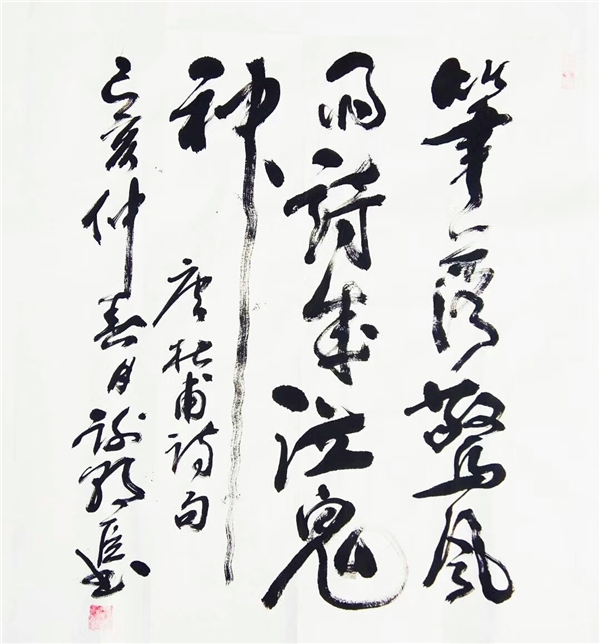 筆落驚風
雨詩成泣鬼
神
唐杜甫诗句
己亥仲春月